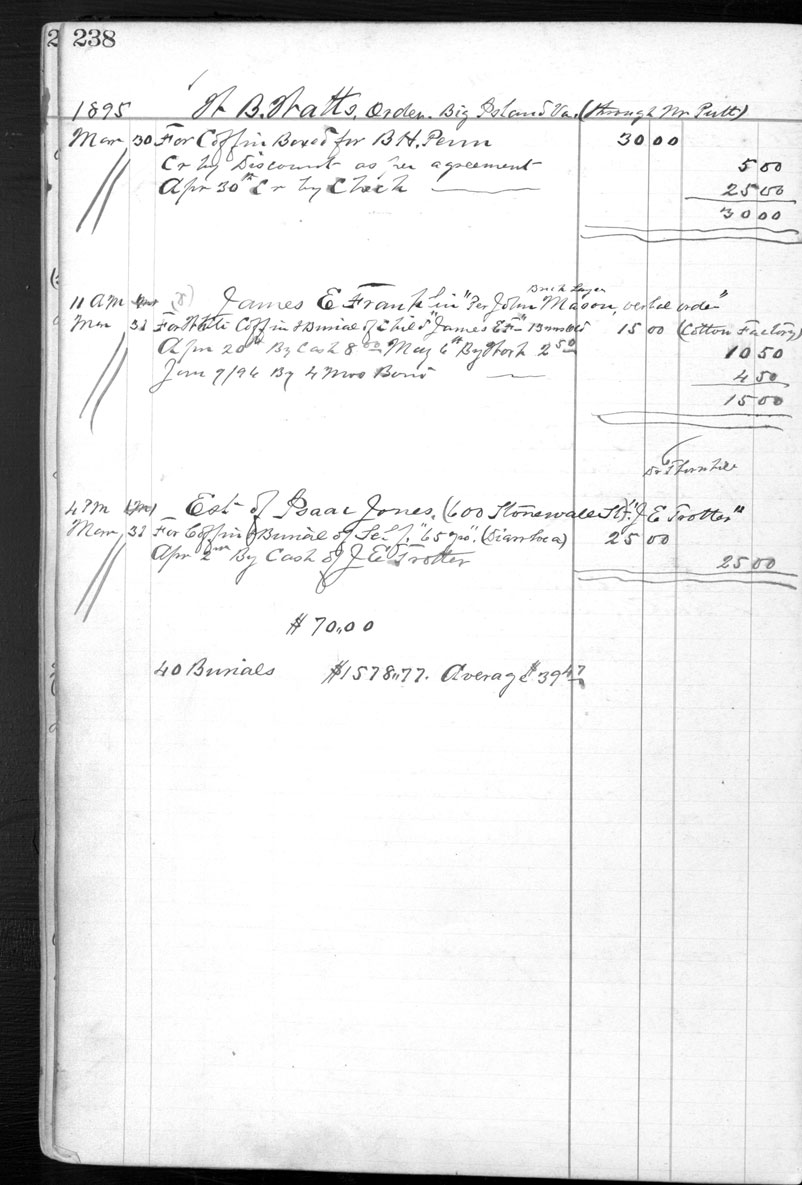 2 238
1895 W B. Watts, Order. Big Island Va. (through Mr Putt)
Mar 30 For Coffin Boxed for B H. Penn 30 00
Cr by Discount as per agreement 5 00
Apr 30th Cr by Check 25 00
30 00
Brick Layer
11 AM James E Franklin "Per John Mason, verbal order"
Mar 31 For White Coffin & Burial of Child "James E F" 13 mos old 15 00 (Cotton Factory)
Apr 20th By Cash 8 00 May 6th By Work 2 50 10 50
Jan 9/96 By 4 Mos Bond 4 50
15 00
Dr Thornhill
4 PM Est of Isaac Jones, (600 Stonewall St) "J E Trotter"
Mar 31 For Coffin & Burial of Self, "65 yrs". (Diarrhoea) 25 00
Apr 2nd By Cash of J E Trotter 25 00
$70.00
40 Burials $1578.77. Average $39 47